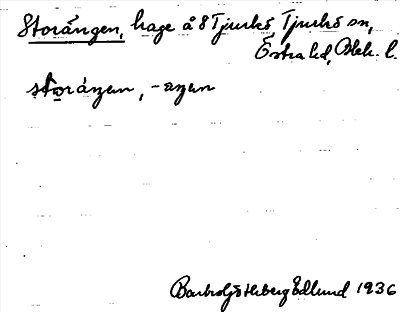 Storängen, hage å 8 Tjurkö, Tjurkö sn,
Östra hd, Blek. l.
storäŋen, -aŋen
Barbro Götheberg Edlund 1936